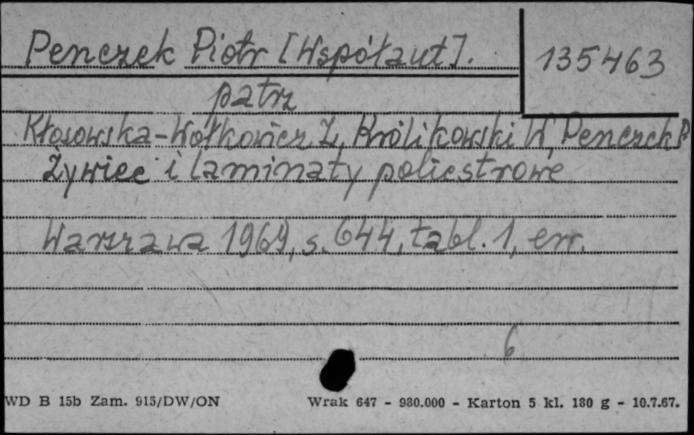 Penczek Piotr [Współaut].
135463
patrz
Kłosowska-Wołkowicz Z, Królikowski W, Penczek P
Żywiec i laminaty poliestrowe
Warszawa 1969, s. 644, tabl. 1, err.
6
WD B 15b Zam. 915/DW/ON Wrak 647 - 980.000 - Karton 5 kl. 180 g - 10.7.67.